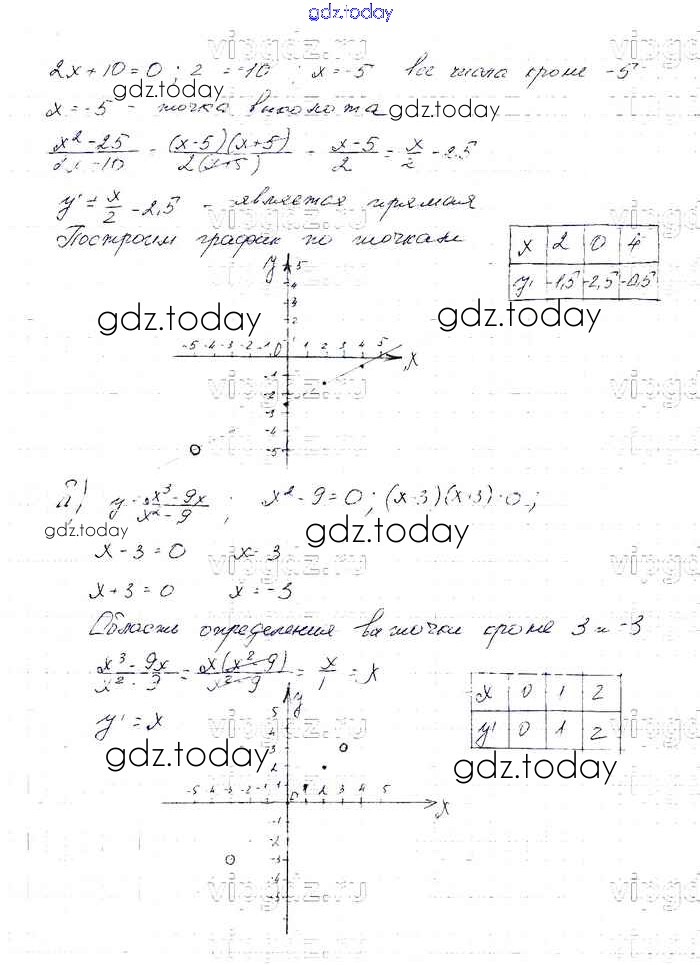 gdz.today
vipgdz.ru
2x+10=0 ; 2 = -10 ; x=-5 все числа кроме -5
gdz.today
x=-5 - точка выколота gdz.today
x²-25 / 2x-10 = (x-5)(x+5) / 2(x+5) = x-5 / 2 = x/2 - 2,5
y' = x/2 - 2,5 - является прямая
Построим график по точкам
x 2 0 4
y' -1,5 -2,5 -0,5
y 5
4
3
2
gdz.today gdz.today
-5 -4 -3 -2 -1 0 1 2 3 4 5 x
-1
-2
-3
-4
-5
vipgdz.ru
y = x³-9x / x²-9 ; x²-9=0 ; (x-3)(x+3)=0 ;
gdz.today gdz.today
x-3=0 x=3
vipgdz.ru
x+3=0 x=-3
Область определения все точки кроме 3 и -3
x³-9x / x²-9 = x(x²-9) / x²-9 = x/1 = x
x 0 1 2
y' 0 1 2
y' = x
y
5
4
3
2
1
gdz.today gdz.today
-5 -4 -3 -2 -1 0 1 2 3 4 5 x
-1
-2
-3
vipgdz.ru